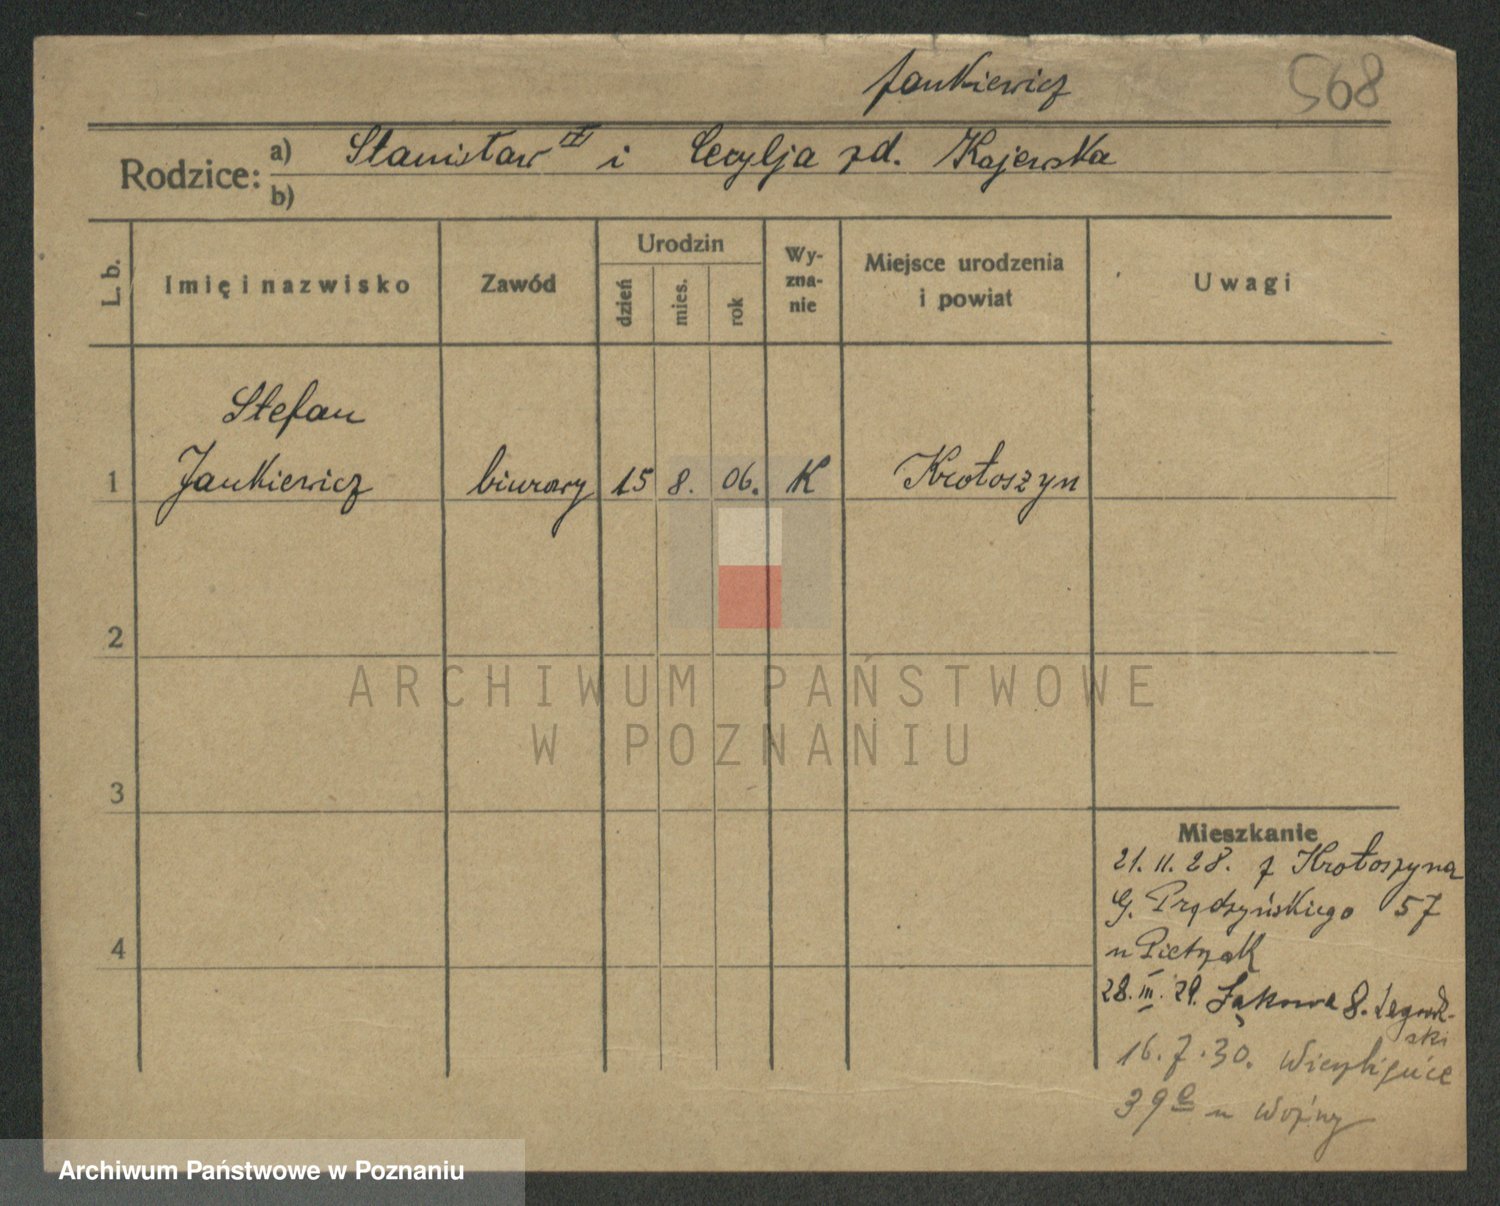 Jankiewicz
568
Rodzice: a) Stanisław i Cecylja zd. Kajewska
b)
L. b. Imię i nazwisko Zawód Urodzin dzień mies. rok Wy-zna-nie Miejsce urodzenia i powiat Uwagi
Stefan
1 Jankiewicz biurowy 15 8. 06. K Krotoszyn
2
ARCHIWUM PAŃSTWOWE
W POZNANIU
3
Mieszkanie
21. 11. 28. z Krotoszyna
G. Prądzyńskiego 57
4
u Pietrzak
28. III. 29. Łąkowa 8.
16. 7. 30.
39 u Woźny
Archiwum Państwowe w Poznaniu